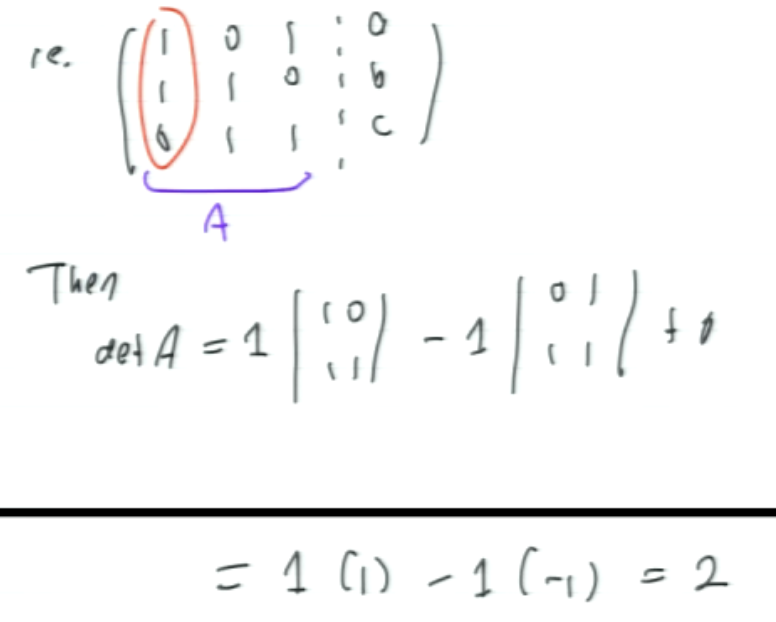 ie. ( 1 0 1 ⋮ a
1 1 0 ⋮ b
0 1 1 ⋮ c )
A
Then
det A = 1 | 1 0 | - 1 | 0 1 | + 0
1 1 1 1
= 1 (1) - 1 (-1) = 2